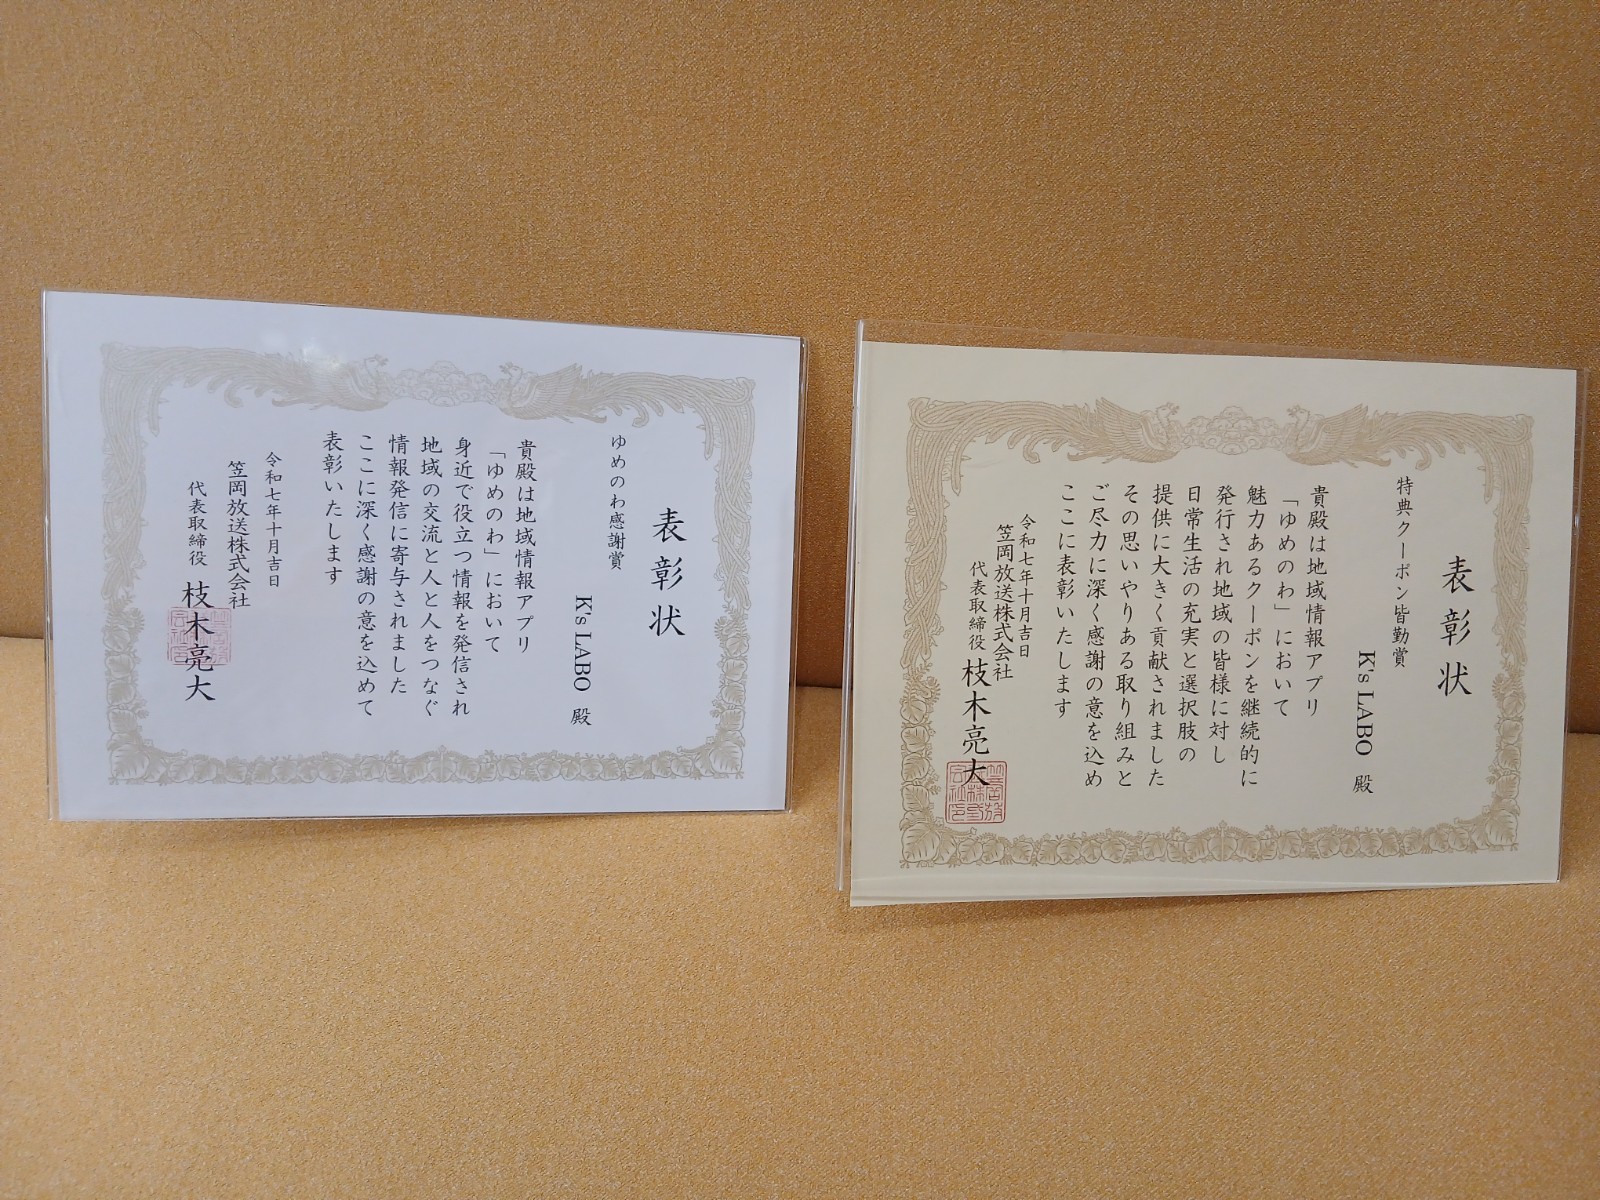 表彰状
ゆめのわ感謝賞
K's LABO 殿
貴殿は地域情報アプリ
「ゆめのわ」において
身近で役立つ情報を発信され
地域の交流と人と人をつなぐ
情報発信に寄与されました
ここに深く感謝の意を込めて
表彰いたします
令和七年十月吉日
笠岡放送株式会社
代表取締役 枝木亮大
表彰状
特典クーポン皆勤賞
K's LABO 殿
貴殿は地域情報アプリ
「ゆめのわ」において
魅力あるクーポンを継続的に
発行され地域の皆様に対し
日常生活の充実と選択肢の
提供に大きく貢献されました
その思いやりある取り組みと
ご尽力に深く感謝の意を込め
ここに表彰いたします
令和七年十月吉日
笠岡放送株式会社
代表取締役 枝木亮大